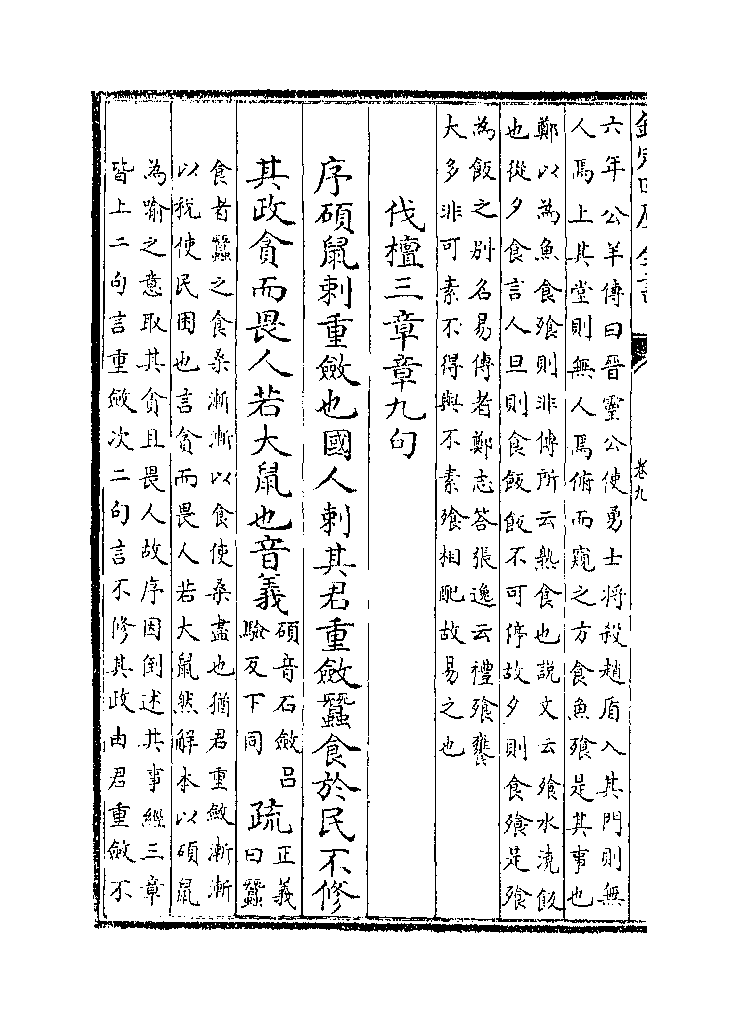 欽定四庫全書
卷九
六年公羊傳曰晉靈公使勇士將殺趙盾入其門則無
人焉上其堂則無人焉俯而窺之方食魚飱是其事也
鄭以為魚食飱則非傳所云熟食也説文云飱水澆飯
也從夕食言人旦則食飯飯不可停故夕則食飱是飱
為飯之别名易傳者鄭志答張逸云禮飱饔
大多非可素不得與不素飱相配故易之也
伐檀三章章九句
序碩鼠刺重斂也國人刺其君重斂蠶食於民不修
其政貪而畏人若大鼠也音義
碩音石斂吕
驗反下同
疏
正義
曰蠶
食者蠶之食桑漸漸以食使桑盡也猶君重斂漸漸
以稅使民困也言貪而畏人若大鼠然解本以碩鼠
為喻之意取其貪且畏人故序因倒述其事經三章
皆上二句言重斂次二句言不修其政由君重斂不